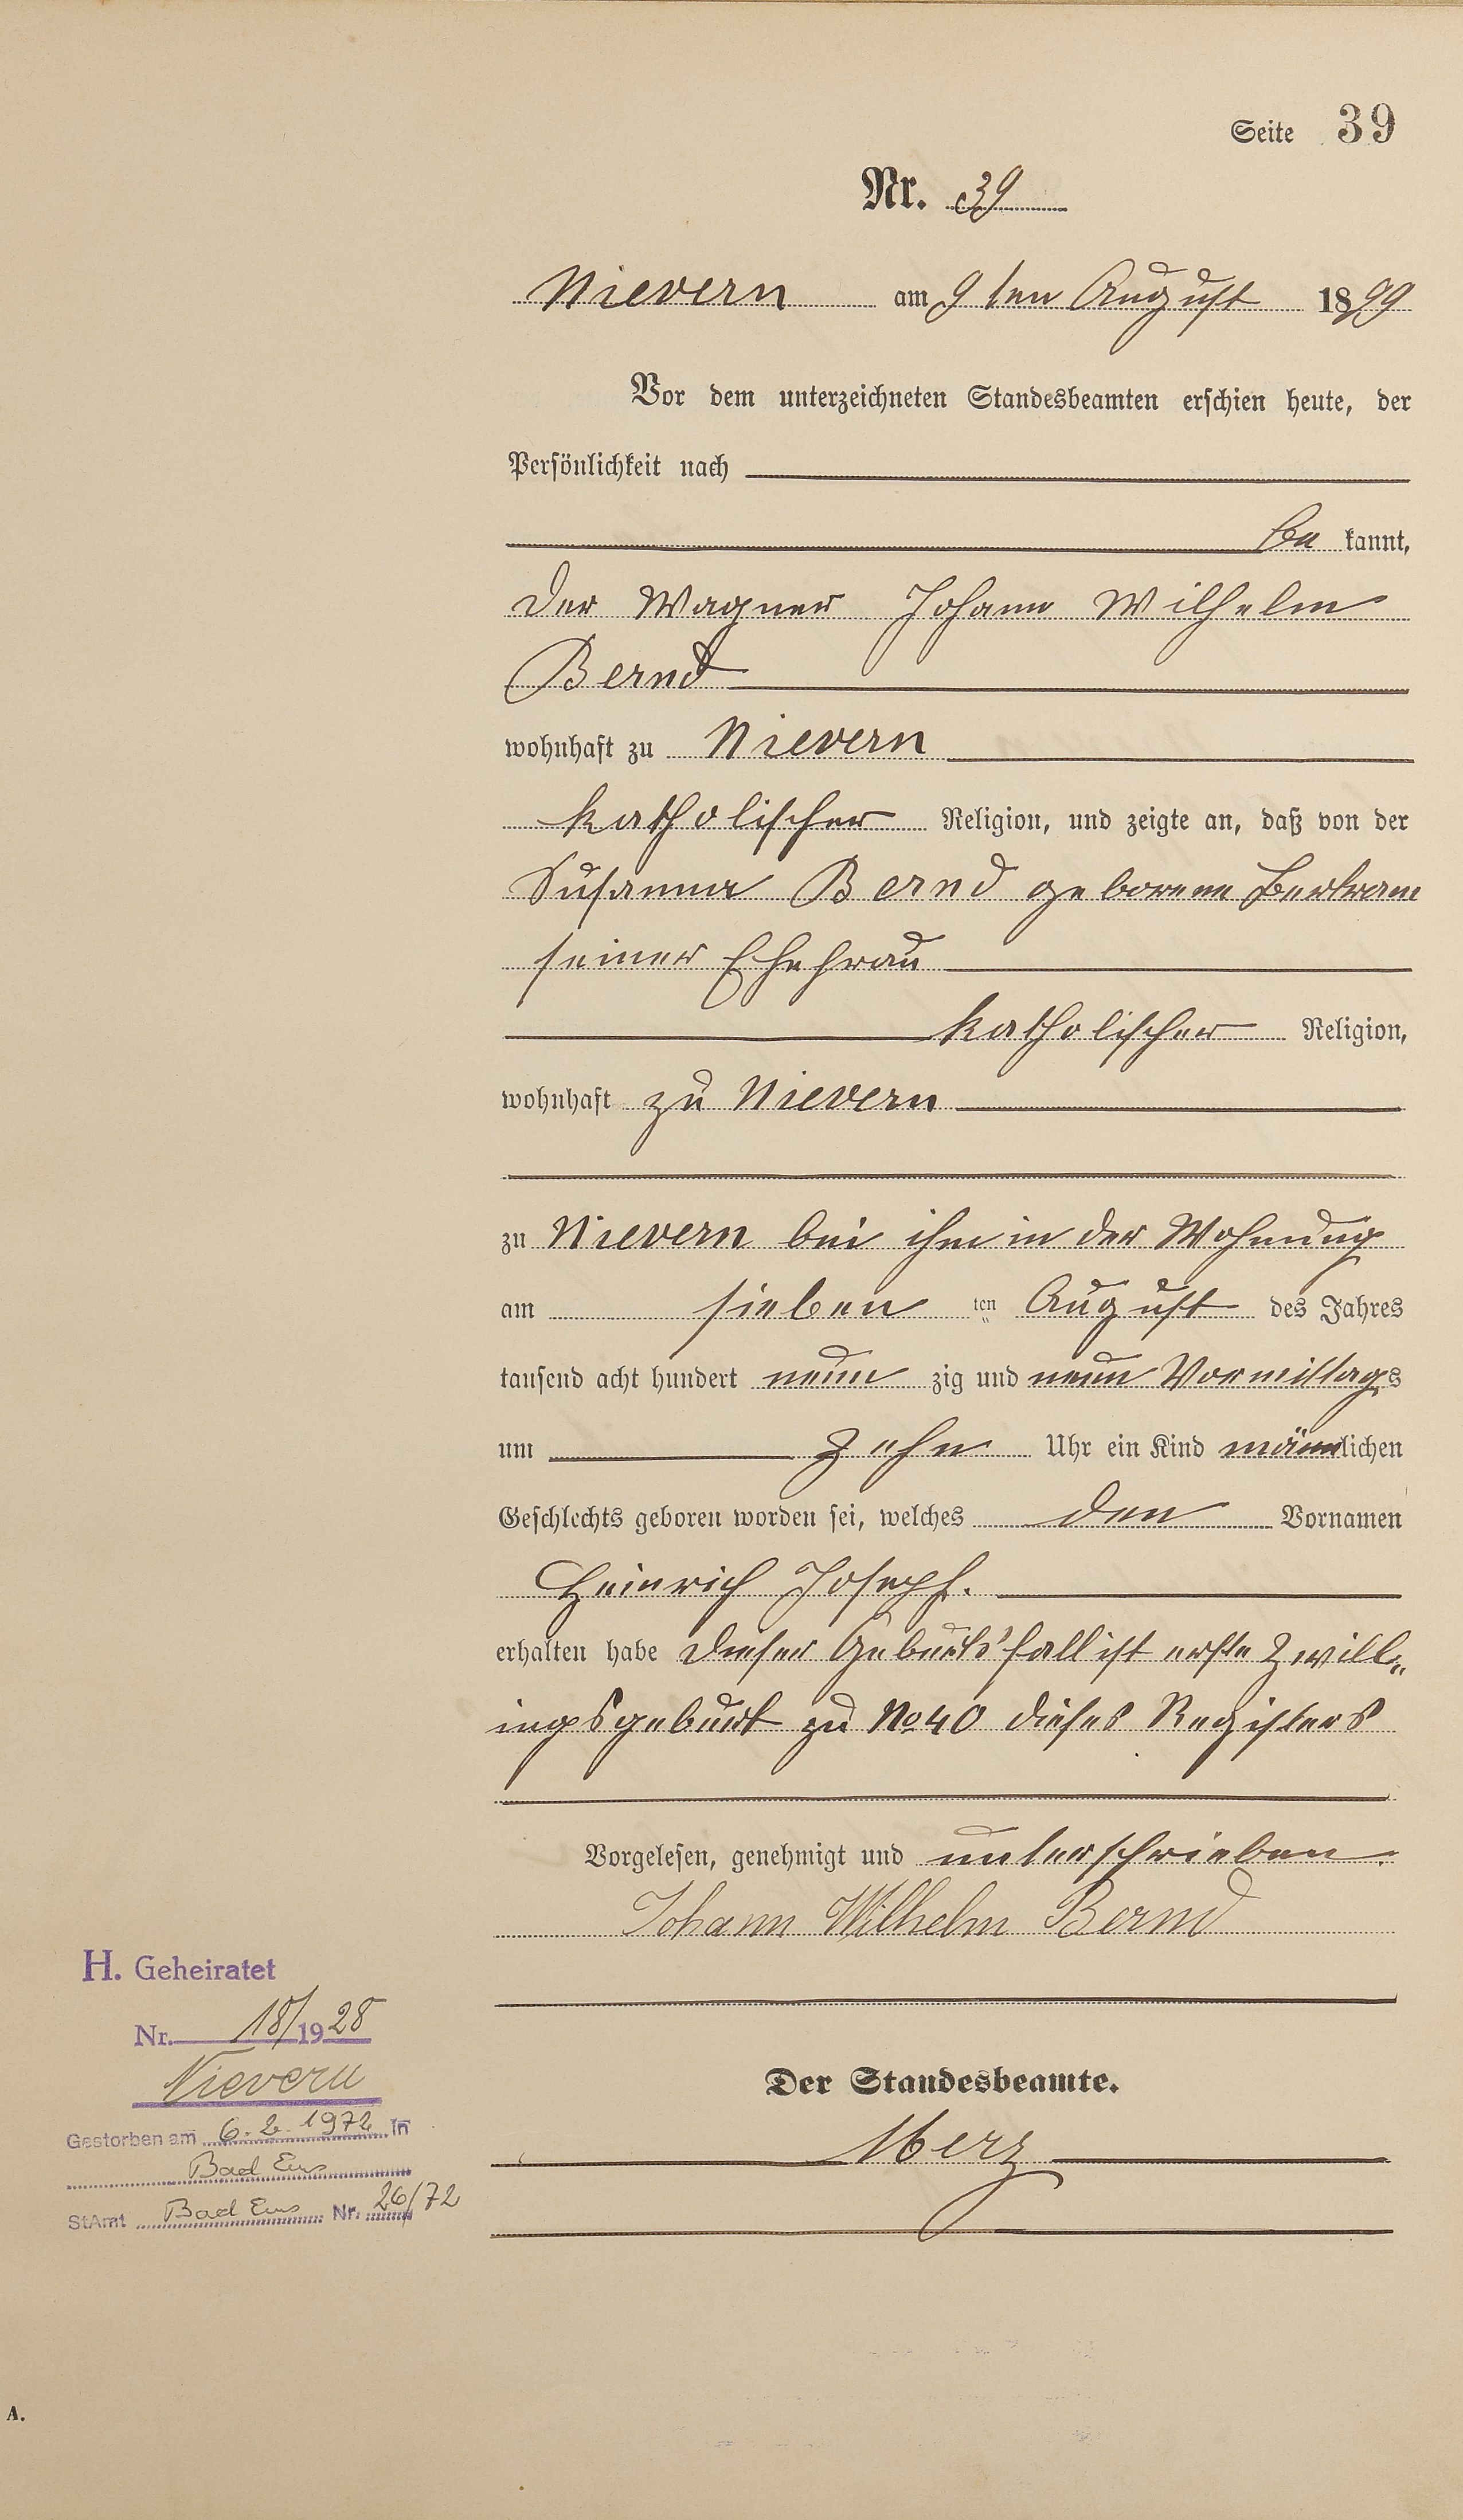 Seite 39
Nr. 39
Nievern am 9ten August 1899
Vor dem unterzeichneten Standesbeamten erschien heute, der
Persönlichkeit nach
be kannt,
der Wagner Johann Wilhelm
Bernd
wohnhaft zu Nievern
katholischer Religion, und zeigte an, daß von der
Susanna Bernd geborene Bertram
seiner Ehefrau
katholischer Religion,
wohnhaft zu Nievern
zu Nievern bei ihm in der Wohnung
am sieben ten August des Jahres
tausend acht hundert neun zig und neun Vormittags
um zehn Uhr ein Kind männlichen
Geschlechts geboren worden sei, welches den Vornamen
Heinrich Joseph.
erhalten habe Dieser Geburtsfall ist erste Zwill„
ingsgeburt zu No 40 dieses Registers
Vorgelesen, genehmigt und unterschrieben.
Johann Wilhelm Bernd
Der Standesbeamte.
Merz
H. Geheiratet
Nr. 18/1928
Nievern
Gestorben am 6.2.1972 in
Bad Ems
StAmt Bad Ems Nr. 26/72
A.